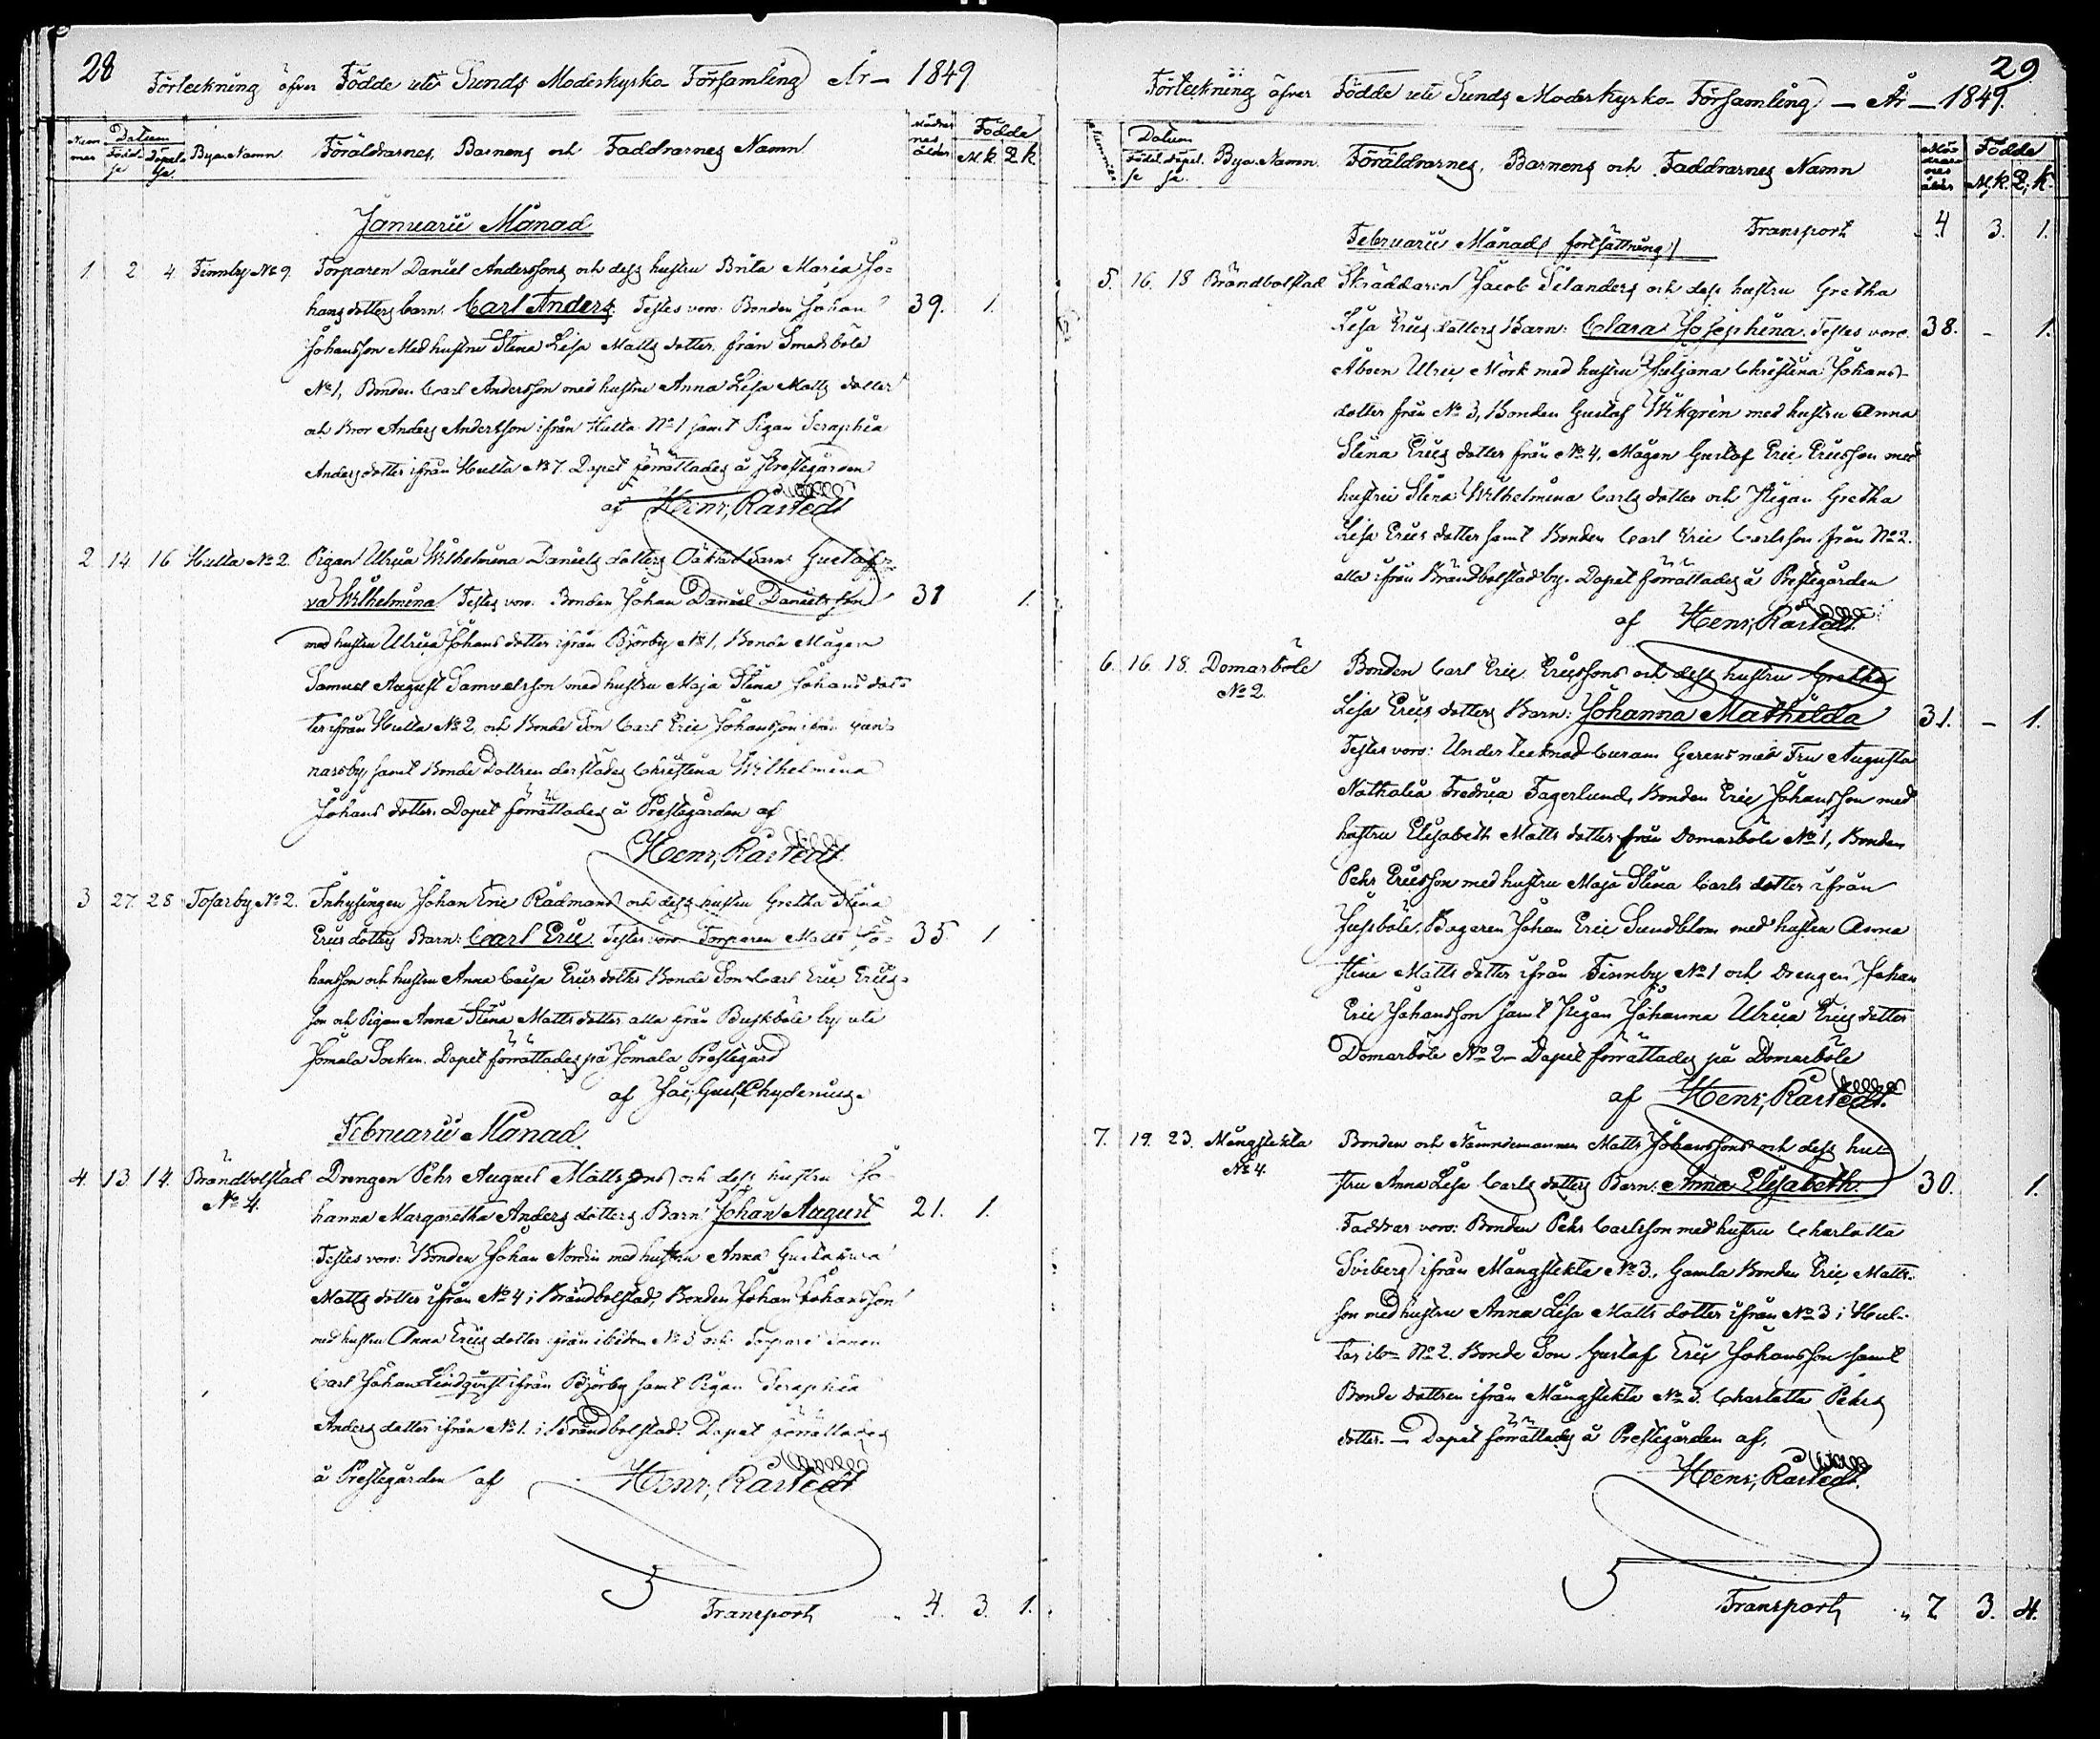 28
Förteckning öfver Födde uti Sunds Moderkyrko- Församling År – 1849
Num
mer
Datum
Födel
se
Döpel
se.
Byar Namn
Föräldrarnes, Barnens och Faddrarnes Namn
Mödrar
nes
ålder
Födde
M.k. Q.k
Januarii Månad
1 2 4. Finnby No 9. Torparen Daniel Anderssons och dess hustru Brita Maria Jo-
hans dotters barn: Carl Anders. Testes voro: Bonden Johan 39. 1.
Johansson Med hustru Stina Lisa Matts dotter från Smedsböle
No 1, Bonden Carl Andersson med hustru Anna Lisa Matts dotter
och Bror Anders Andersson ifrån Hulta No 1 samt Pigan Seraphia
Anders dotter ifrån Hulta No 7. Dopet förrättades å Prestegården
af Henr; Råstedt
2 14. 16 Hulta No 2. Pigan Ulrica Wilhelmina Daniels dotters Oäkta Barn: Gustaf-
va Wilhelmina Testes voro: Bonden Johan Daniel Danielsson 31 1.
med hustru Ulrica Johans dotter ifrån Björby No 1, Bonde Mågen
Samuel August Samuelsson med hustru Maja Stina Johans dot-
ter ifrån Hulta No 2, och Bonde Son Carl Eric Johansson ifrån
narsby samt Bonde Dottren derstädes Christina Wilhelmina
Johans dotter. Dopet förrättades å Prestegården af
Henr; Råstedt.
3 27. 28 Tosarby No 2. Inhysingen Johan Eric Rådmans och dess hustru Gretha Stina
Erics dotters Barn: Carl Eric. Testes voro Torparen Matts Jo- 35. 1
hansson och hustru Anna Caisa Erics dotter Bonde Son Carl Eric Erics-
son och Pigan Anna Stina Matts dotter alla från Buskböle by uti
Jomala Socken. Dopet förrättades på Jomala Prestegård
af Jac; Gust; Chydenius.
Februarii Månad
4. 13 14. Brändbolstad Drengen Pehr August Mattssons och dess hustru Jo-
No 4. hanna Margaretha Anders dotters Barn: Johan August 21. 1.
Testes voro: Bonden Johan Nordin med hustru Anna Gustafva
Matts dotter ifrån No 4 i Brändbolstad, Bonden Johan Johansson
med hustru Anna Erics dotter ifrån ibidem No 3 och Torpare Sonen
Carl Johan Lindqvist ifrån Björby samt Pigan Seraphia
Anders dotter ifrån No 1. i Brändbolstad. Dopet förrättades
å Prestegården af Henr; Råstedt
Transport 4. 3. 1.
29.
Förteckning öfver Födde uti Sunds Moderkyrko- Församling – År – 1849.
Nummer
Datum
Födel
se
döpel.
se.
Bya-Namn.
Föräldrarnes, Barnens och Faddrarnes Namn
Mö-
drar
nes
ålder
Födde
M.k. Q.k.
Transport 4 3. 1.
Februarii Månads fortsättning
5. 16. 18 Brändbolstad Skräddaren Jacob Silanders och dess hustru Gretha
Lisa Erics dotters Barn: Clara Josephina. Testes voro. 38. – 1.
Åboen Ulric Mörk med hustru Juljana Christina Johans-
dotter från No 3, Bonden Gustaf Wikgrén med hustru Anna
Stina Erics dotter från No 4, Mågen Gustaf Eric Ericsson med
hustru Stina Wilhelmina Carls dotter och Pigan Gretha
Lisa Erics dotter samt Bonden Carl Eric Carlsson från No 2.
alla ifrån Brändbolstad by. Dopet förrättades å Prestegården
af Henr; Råstedt.
6. 16. 18. Domarböle Bonden Carl Eric Ericssons och dess hustru Gretha
No 2. Lisa Erics dotters Barn: Johanna Mathilda 31. – 1.
Testes voro: Undertecknad Curam Gerens med Fru Augusta
Nathalia Fredrica Fagerlund, Bonden Eric Johansson med
hustru Elisabeth Matts dotter från Domarböle No 1, Bonden
Pehr Ericsson med hustru Maja Stina Carls dotter ifrån
Jussböle, Bagaren Johan Eric Sundblom med hustru Anna
Stina Matts dotter ifrån Finnby No 1 och Drengen Johan
Eric Johansson samt Pigan Johanna Ulrica Erics dotter
Domarböle No 2 – Dopet förrättades på Domarböle
af Henr; Råstedt.
7. 19. 23. Mångstekta Bonden och Nämndemannen Matts Johanssons och dess hu-
No 4. stru Anna Lisa Carls dotters Barn: Anna Elisabeth. 30. 1.
Faddrar voro: Bonden Pehr Carlsson med hustru Charlotta
Sviberg ifrån Mångstekta No 3., Gamla Bonden Eric Matts-
son med hustru Anna Lisa Matts dotter ifrån No 3 i Hul-
ta, ib- No 2. Bonde Son Gustaf Eric Johansson samt
Bonde dottren ifrån Mångstekta No 3. Charlotta Pehrs
dotter. – Dopet förrättades å Prestegården af,
Henr; Råstedt.
Transport 7 3. 4.